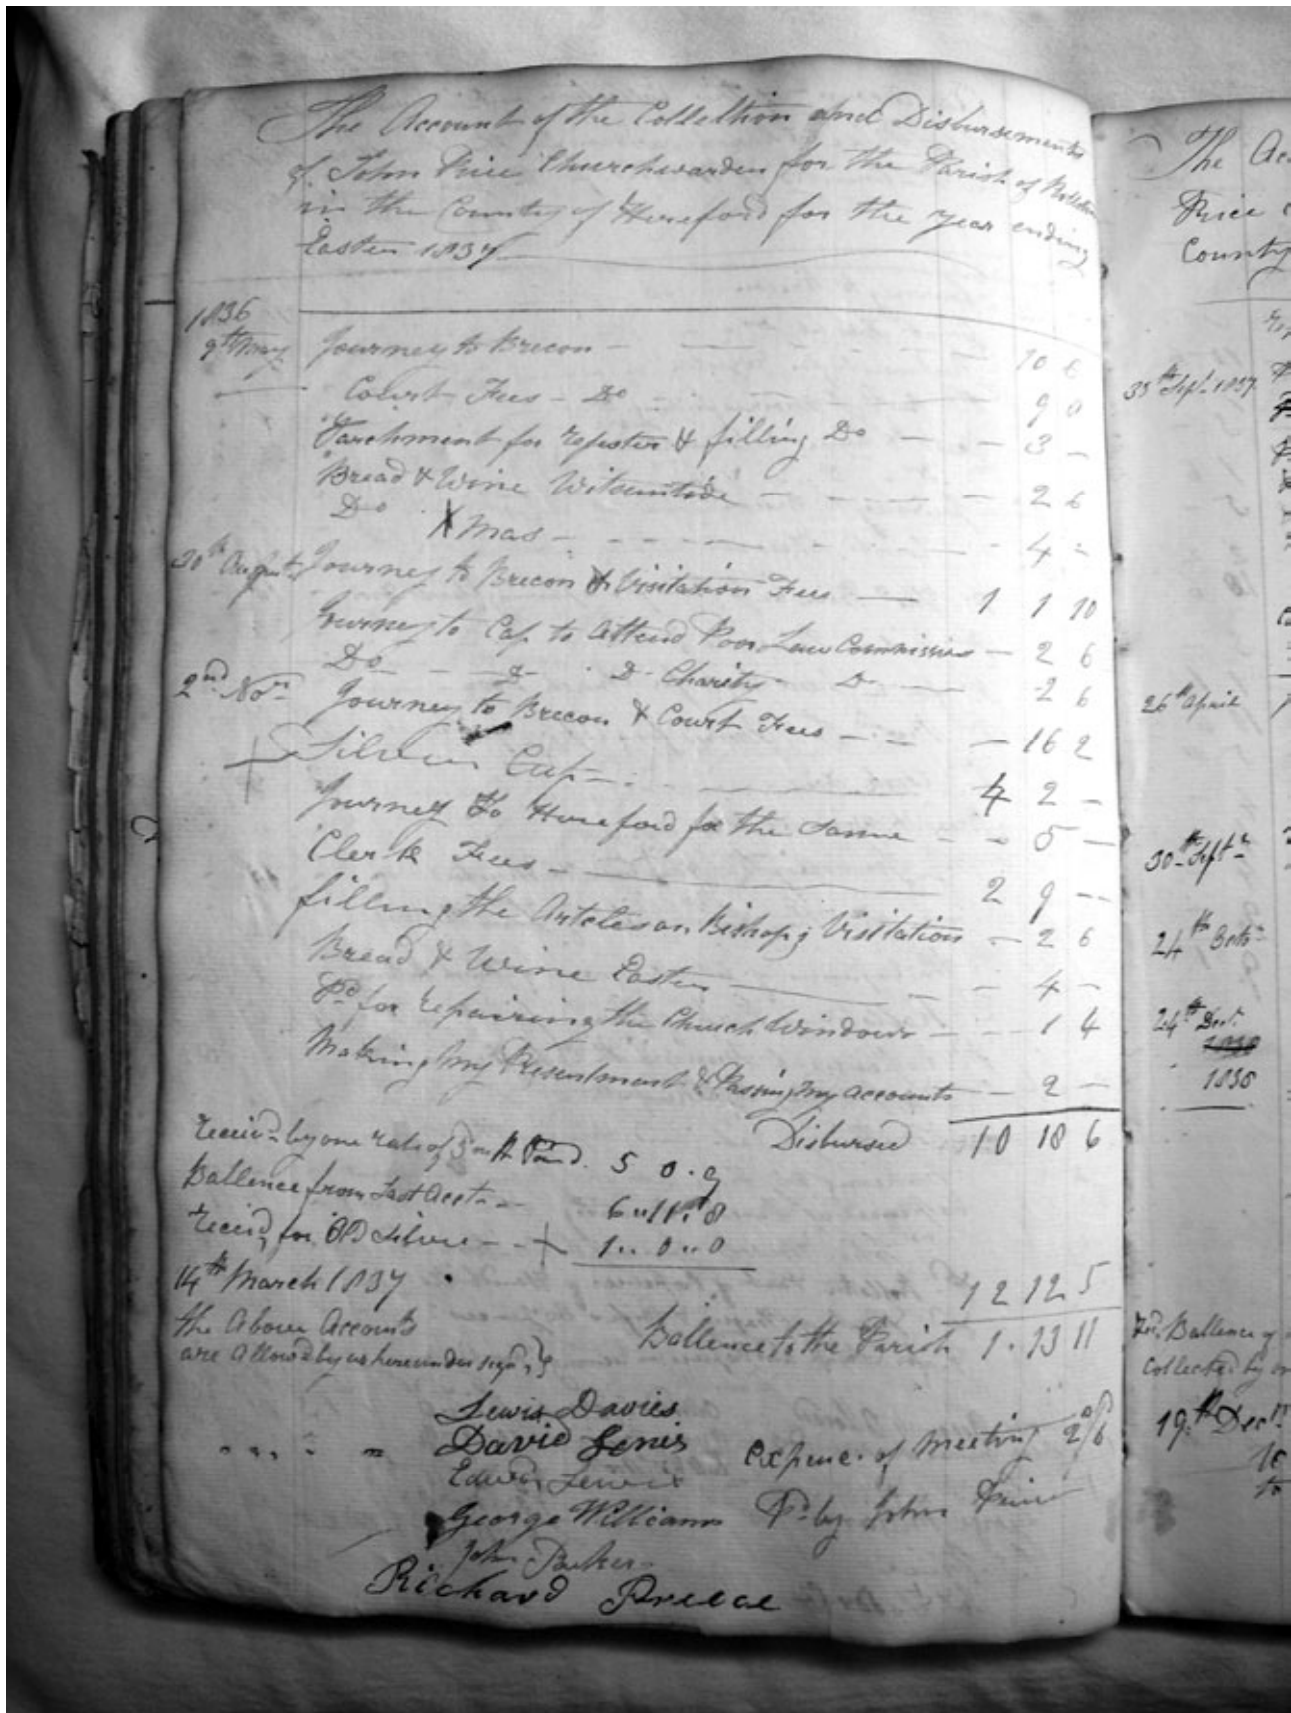 The Account of the Collection and Disbursements
of John Price Churchwarden for the Parish of
in the County of Hereford for the year ending
Easter 1837
1836
9th May Journey to Brecon - 10 6
Court Fees - Do 9 0
Parchment for register & filling Do - 3 -
Bread & Wine Witsuntide - 2 6
Do Xmas - 4 -
30th August Journey to Brecon & Visitation Fees - 1 1 10
Journey to Cap to Attend Poor Law Commissi - 2 6
Do - Do - Do Charity Do - 2 6
2nd Novr Journey to Brecon & Court Fees - 16 2
Silver Cup - 4 2 -
Journey to Hereford for the Same - 5 -
Clerk Fees - 2 9 -
filling the Articles on Bishops Visitation - 2 6
Bread & Wine Easter - 4 -
Pd for repairing the Church Windows - 1 4
Making my Presentment & Passing my Accounts - 2 -
Disbursed 10 18 6
Receivd by one rate of Pound. 5 0. 9
Ballence from Last Acct - 6 11 8
Receid for Old Silver - + 1 .. 0 .. 0
14th March 1837 12 12 5
the Above Accounts
are Allowd by us hereunder signd
Ballence to the Parish 1 . 13 11
Lewis Davies
David Lewis
Edwd Lewis
George Williams
John Parker
Richard Preece
Expence of Meeting 2/6
Pd by John Price
The Ac
Price
County
30th Sept 1837
26th April
30th Septr
24th Octr
24th Decr
1838
1838
Ballence of
Collected by
19th Decr
to